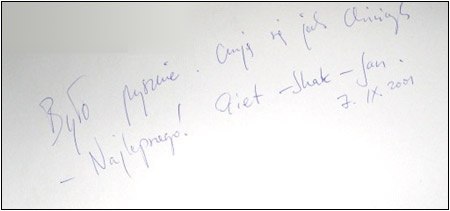 Było pysznie. Czuję się jak Chińczyk
– Najlepszego! Giet-Shak-San.
7. IX. 2001